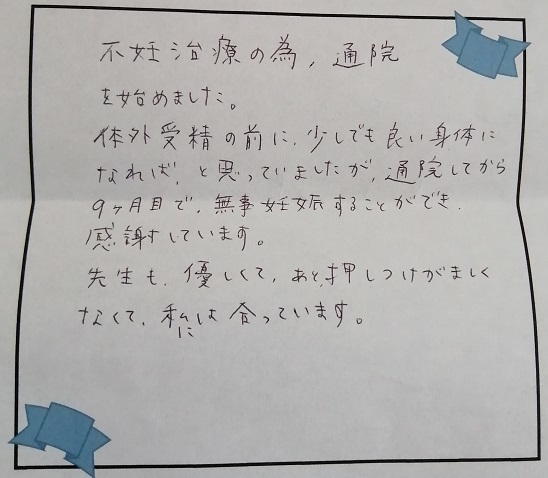 不妊治療の為, 通院
を始めました。
体外受精の前に, 少しでも良い身体に
なれば, と思っていましたが, 通院してから
9ヶ月目で, 無事妊娠することができ,
感謝しています。
先生も, 優しくて, あと, 押しつけがましく
なくて, 私には合っています。